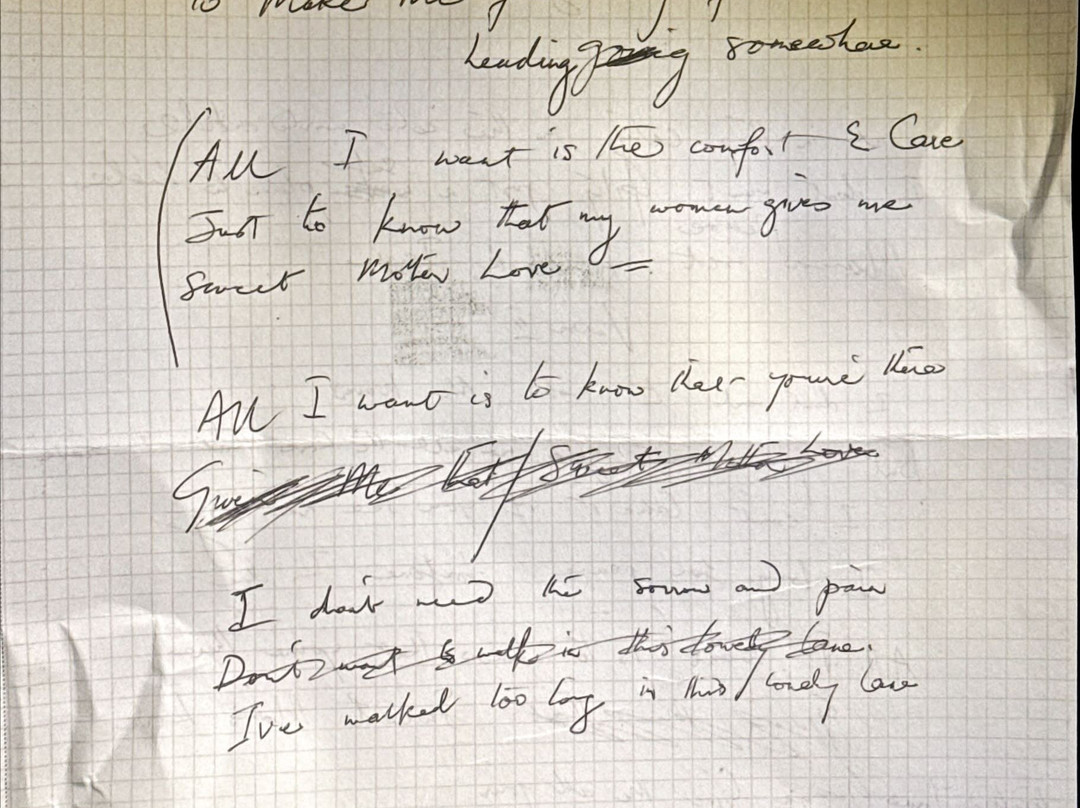 to make me
Leading going somewhere.
All I want is the comfort & Care
Just to know that my women gives me
Sweet Mother Love =
All I want is to know that you're there
Give Me that / Sweet Mother Love
I don't need the sorrow and pain
Don't want to walk in this lonely lane.
I've walked too long in this / lonely lane